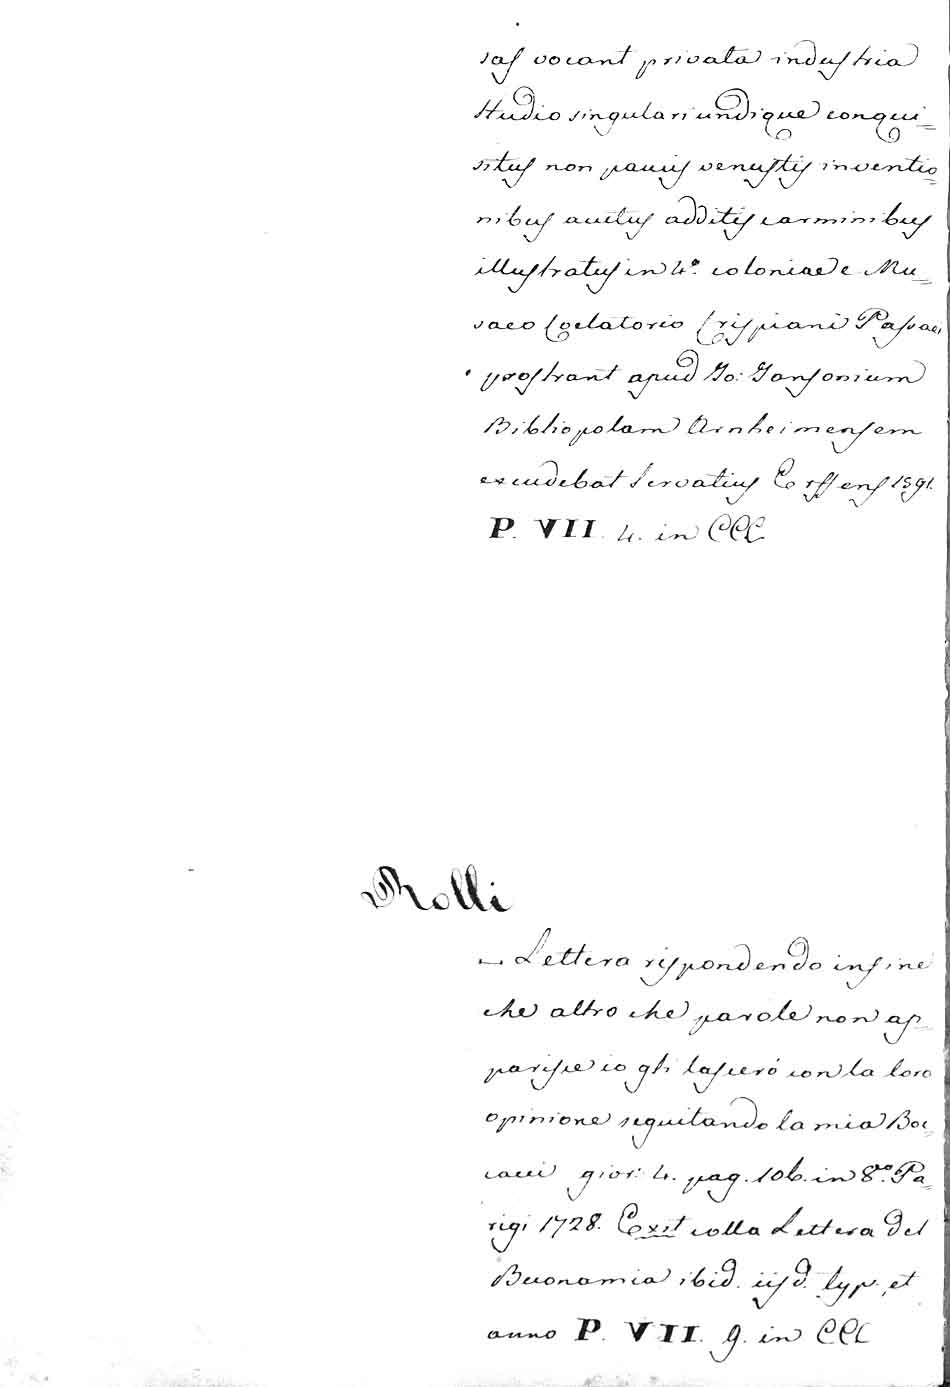 sas vocant privata industria
studio singulari undique conqui=
situs non paucis venustis inventio=
nibus auctus additis carminibus
illustratus in 4.º coloniae e Mu=
saeo Coelatorio Crispiani Passaei
prostrant apud Jo: Jansonium
Bibliopolam Arnheimensem
excudebat Servatius Erffens 1591.
P. VII. 4. in CCC
Rolli
— Lettera rispondendo insine
che altro che parole non ap=
parisce io gli lascerò con la loro
opinione seguitando la mia Boc=
cacci gior: 4. pag. 106. in 8.vo Pa=
rigi 1728. Exst colla Lettera del
Buonamia ibid. iisd. typ., et
anno P. VII. 9. in CCC